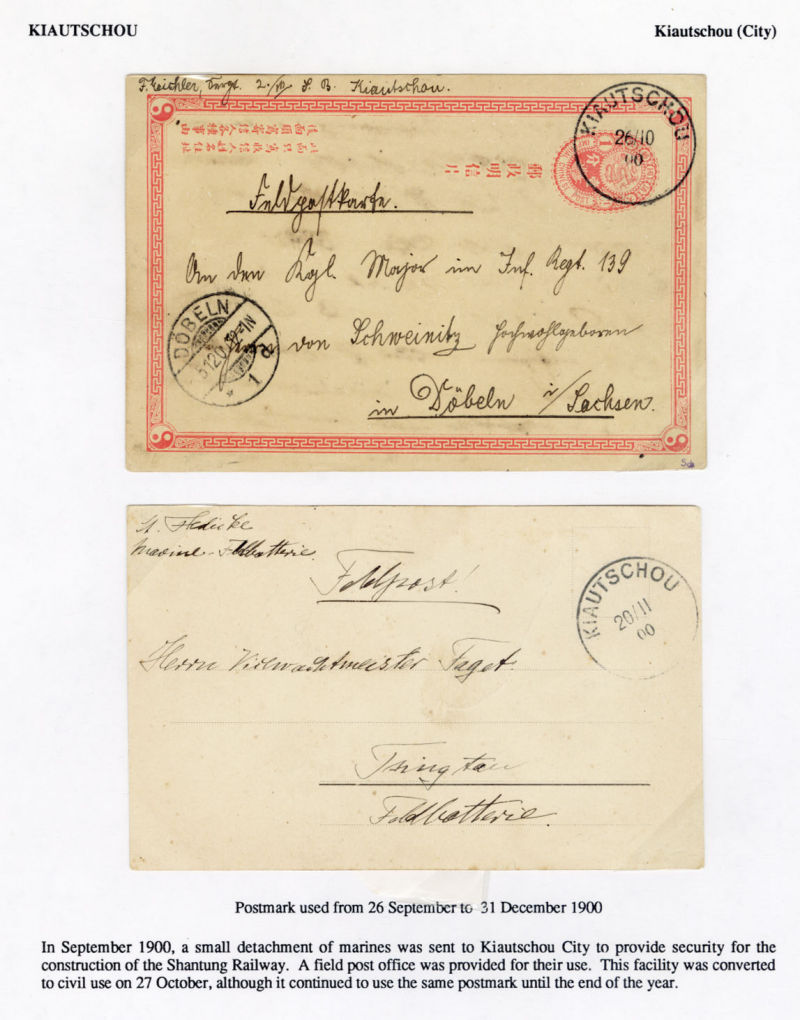 KIAUTSCHOU
Kiautschou (City)
F. Eichler, Sergt. 2./III S. B. Kiautschou.
KIAUTSCHOU
26/10
00
此面只寫收信人姓名住址
後面頭寫寄信人各種事由
郵政明信片
1 分
Feldpostkarte.
An den Kgl. Major im Inf. Regt. 139
DÖBELN
von Schweinitz Hochwohlgeboren
1
in Döbeln i/Sachsen.
Feldpost!
Marine-Feldbatterie.
KIAUTSCHOU
20/11
00
Herrn Vicewachtmeister
Tsingtau
Feldbatterie.
Postmark used from 26 September to 31 December 1900
In September 1900, a small detachment of marines was sent to Kiautschou City to provide security for the
construction of the Shantung Railway. A field post office was provided for their use. This facility was converted
to civil use on 27 October, although it continued to use the same postmark until the end of the year.